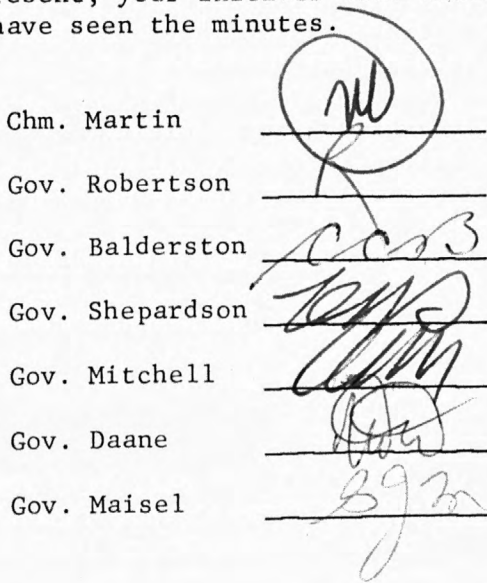 your
have seen the minutes.
Chm. Martin
Gov. Robertson R
Gov. Balderston CCB
Gov. Shepardson
Gov. Mitchell
Gov. Daane
Gov. Maisel SJM